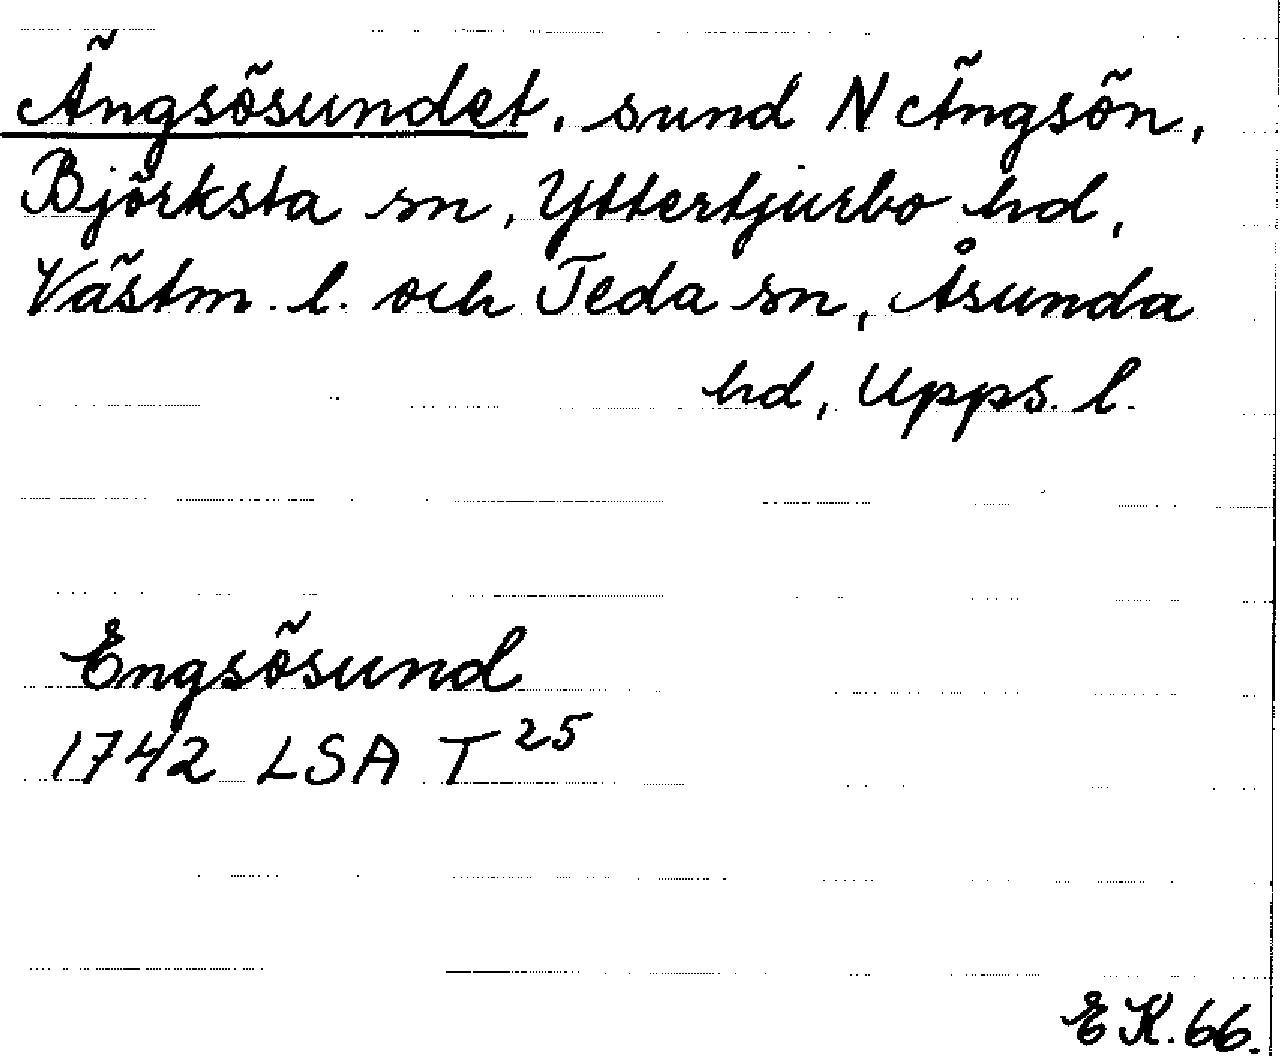 Ängsösundet, sund N Ängsön,
Björksta sn, Yttertjurbo hd,
Västm. l. och Teda sn, Åsunda
hd, Upps. l.
Engsösund
1742 LSA T 25
E K. 66.